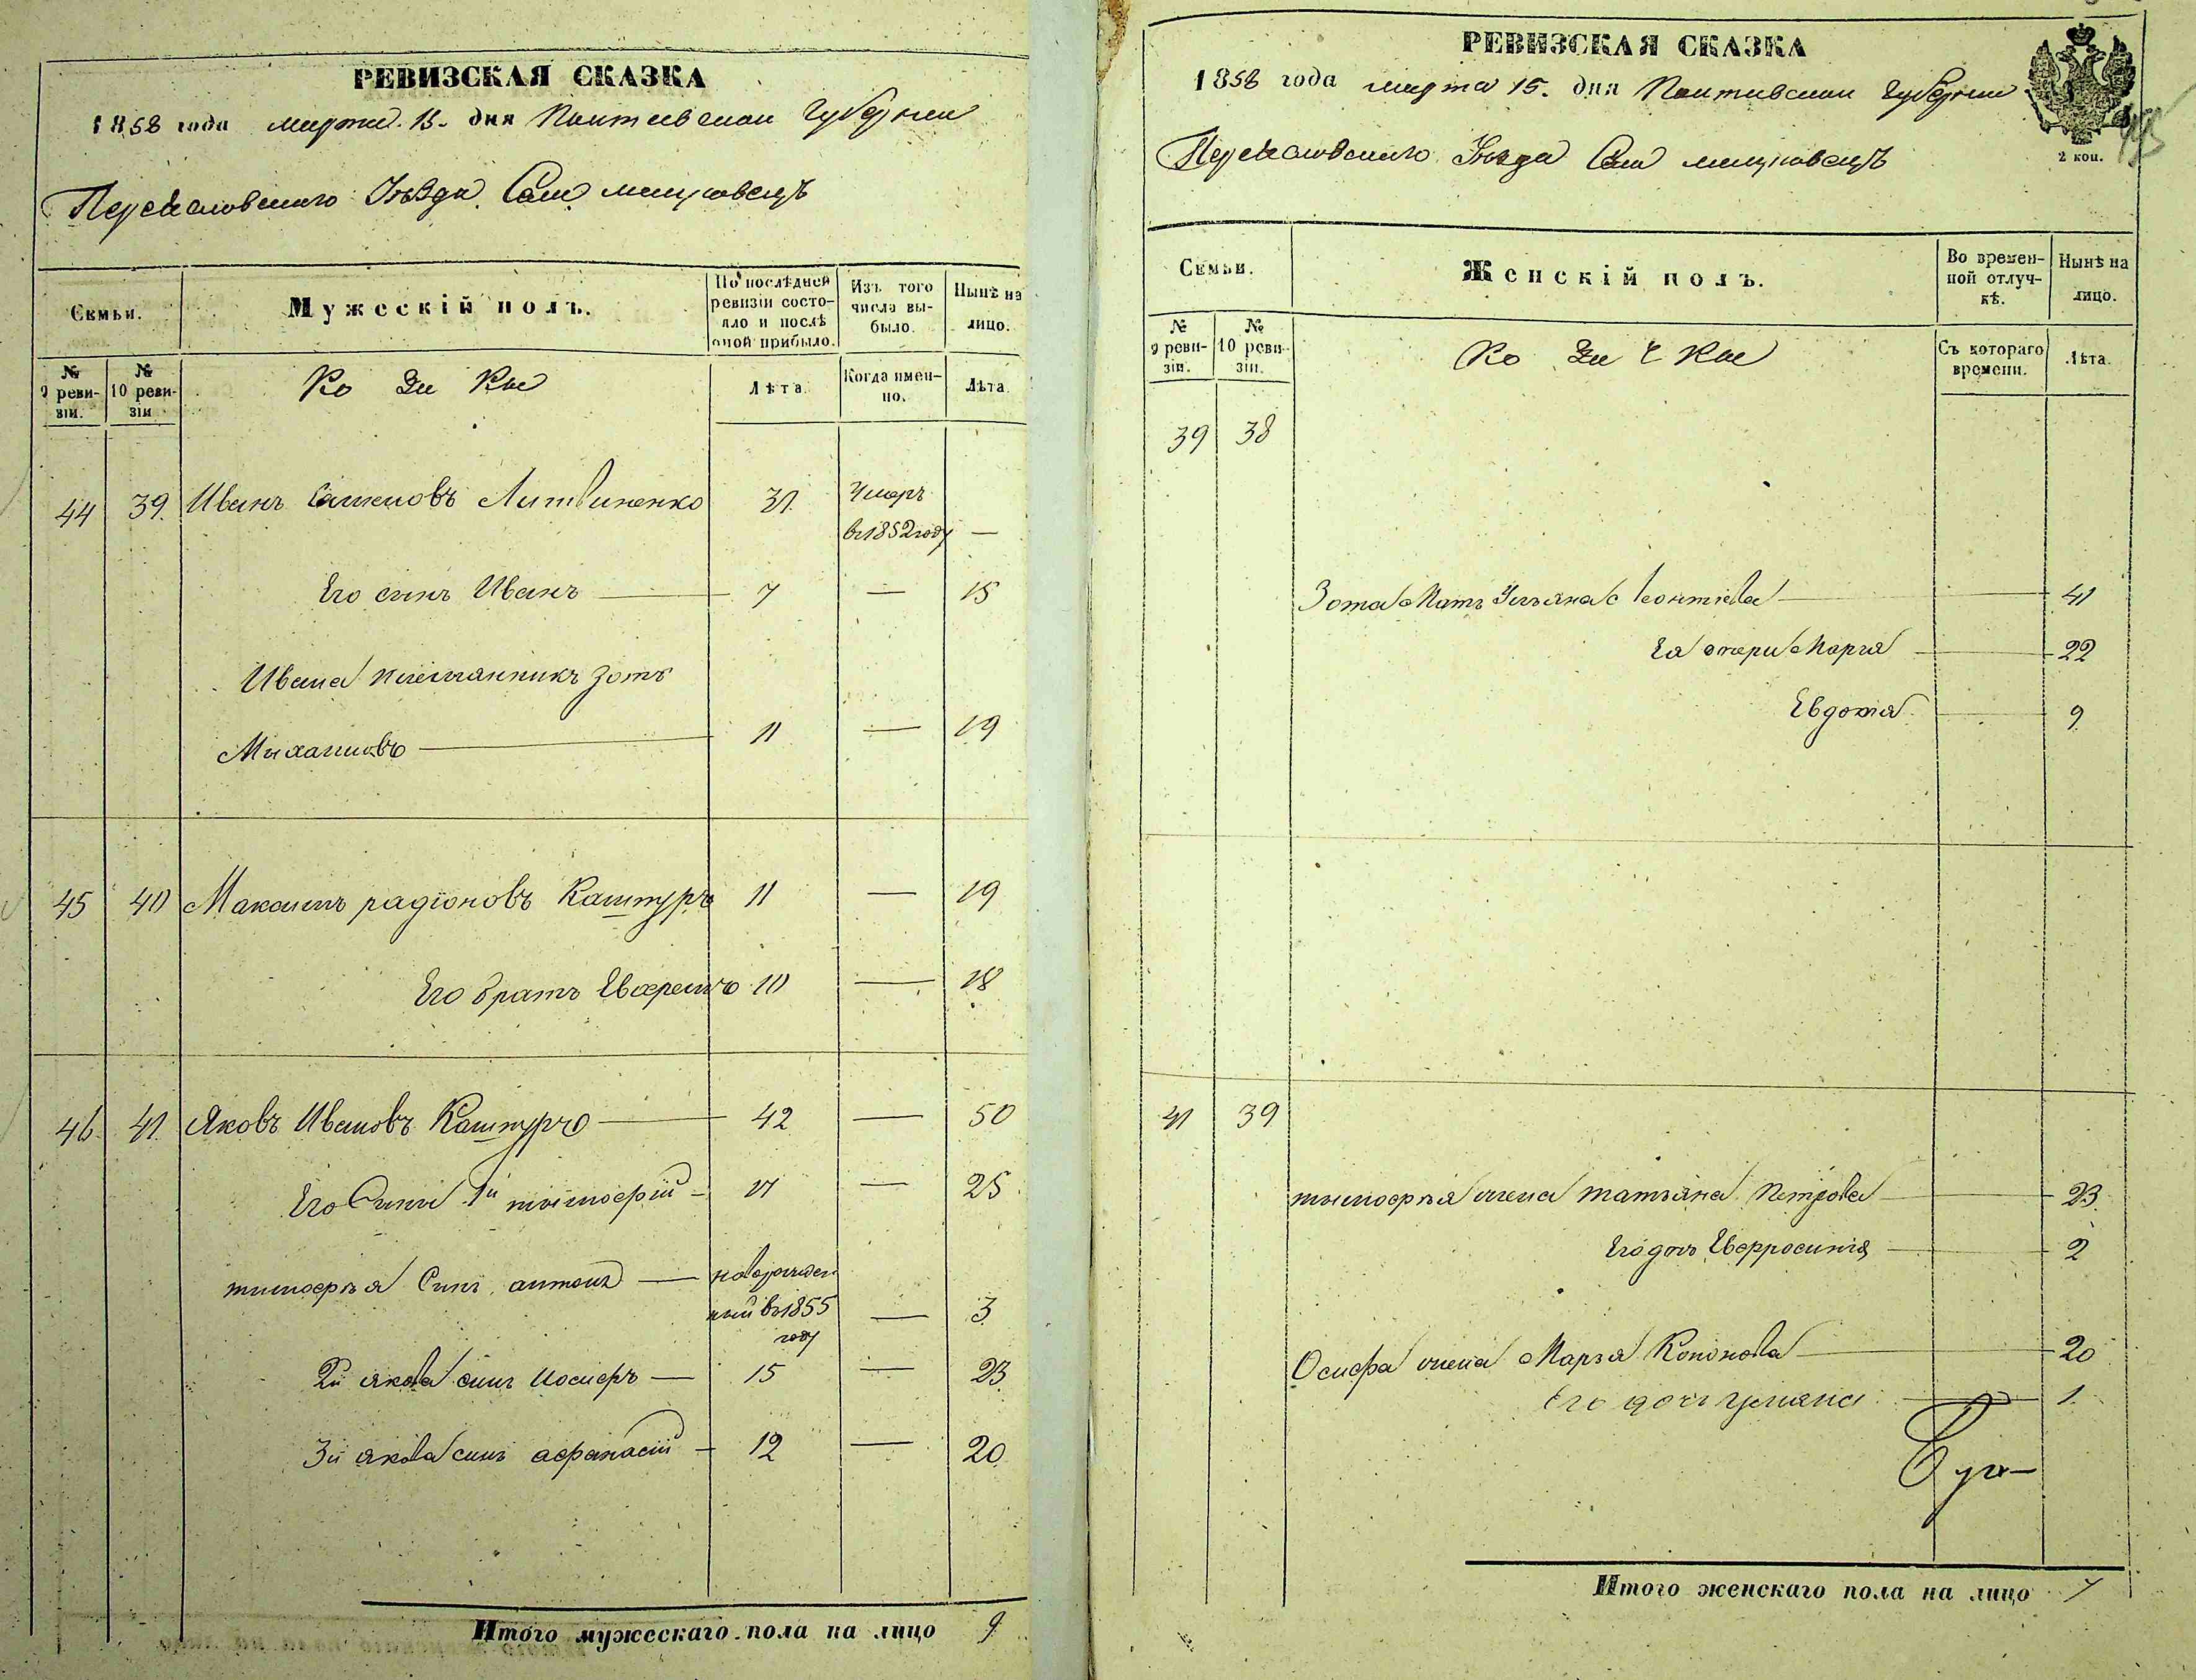 РЕВИЗСКАЯ СКАЗКА
1858 года марта 15. дня Полтавской Губернии
Переяславского Уѣзда Села
Семьи.
Мужескій полъ.
По послѣдней ревизіи состояло и послѣ оной прибыло.
Изъ того числа выбыло.
Нынѣ на лицо.
№ 9 ревизіи.
№ 10 ревизіи
Козаки
Лѣта.
Когда именно.
Лѣта
44 39. Иванъ Литвиненко 31. Умеръ
въ 1852 году —
Его синъ Иванъ — 7 — 15
Ивана племянникъ Зотъ
Михаиловъ — 11 — 19
45 40 Максимъ радіоновъ Каштуръ 11 — 19
Его братъ 10 — 18
46. 41. Яковъ Ивановъ Каштуръ — 42 — 50
Его Сини 1й тымофій — 17 — 25
тимофѣя Синъ антонъ — новорожден
ный въ 1855 — 3
году
2й якова синъ Иосифъ — 15 — 23
3й якова синъ афанасій — 12 — 20
Итого мужескаго пола на лицо 9
РЕВИЗСКАЯ СКАЗКА
1858 года марта 15. дня Полтавской Губернии
2 коп.
Переяславского Уѣзда Села
Семьи.
Женскій полъ.
Во временной отлучкѣ.
Нынѣ на лицо.
№ 9 ревизіи.
№ 10 ревизіи.
Козачки
Съ котораго времени.
Лѣта.
39 38
Зота Мать Ульяна Леонтіева — 41
Ея дочери Марія — 22
Евдокія — 9
41 39
тымофѣя жена татьяна Петрова — 23.
Его дочь Евфросинія — 2
Осифа жена Марья Кононова — 20
Его дочь — 1.
Итого женскаго пола на лицо 7